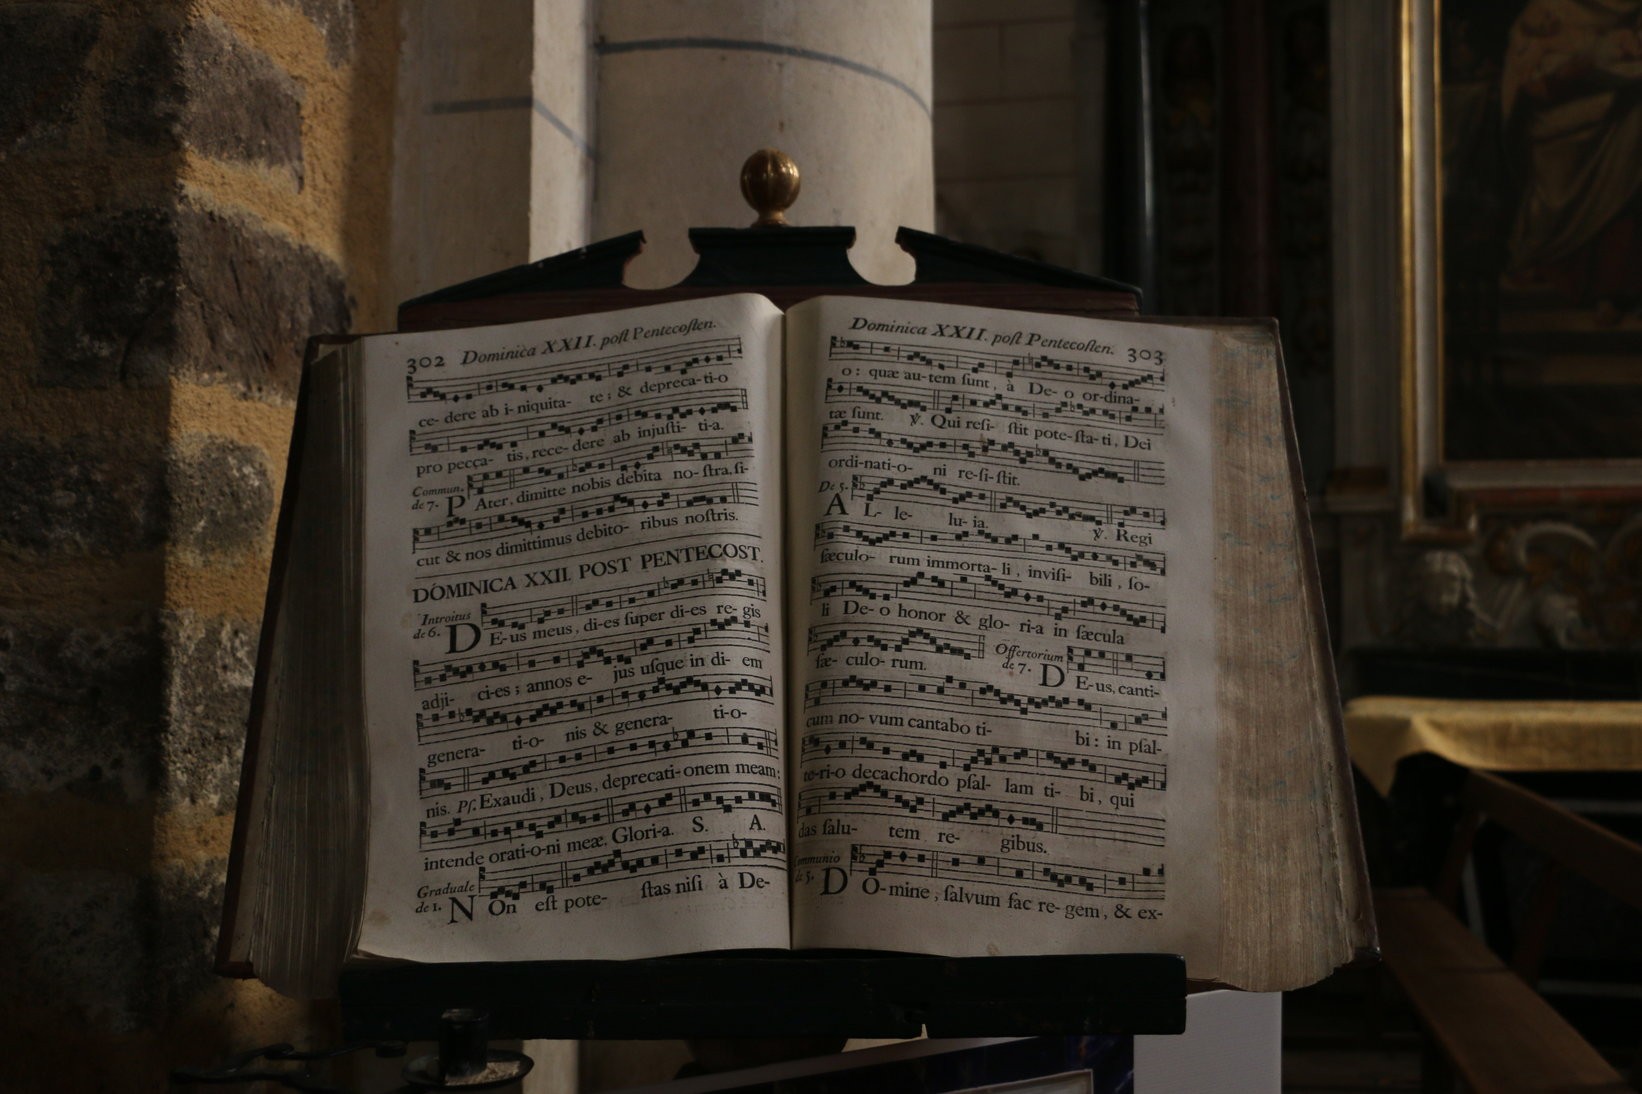 302 Dominica XXII. poſt Pentecoſten.
ce- dere ab i- niquita- te; & depreca-ti-o
pro pecca- tis, rece- dere ab injuſti- ti-a.
Commun. de 7. P Ater, dimitte nobis debita no- ſtra, ſi-
cut & nos dimittimus debito- ribus noſtris.
DOMINICA XXII. POST PENTECOST.
Introitus de 6. D E-us meus, di-es ſuper di-es re- gis
adji- ci-es; annos e- jus uſque in di- em
genera- ti-o- nis & genera- ti-o-
nis. Pſ. Exaudi, Deus, deprecati-onem meam:
intende orati-o-ni meæ. Glori-a. S. A.
Graduale de 1. N On eſt pote- ſtas niſi à De-
Dominica XXII. poſt Pentecoſten. 303
o: quæ au-tem ſunt, à De- o or-dina-
tæ ſunt. ℣. Qui reſi- ſtit pote-ſta-ti, Dei
ordi-nati-o- ni re-ſi-ſtit.
De 5. A L- le- lu- ia. ℣. Regi
ſæculo- rum immorta- li, inviſi- bili, ſo-
li De- o honor & glo- ri-a in ſæcula
ſæ- culo- rum. Offertorium de 7. D E-us, canti-
cum no- vum cantabo ti- bi: in pſal-
te-ri-o decachordo pſal- lam ti- bi, qui
das ſalu- tem re- gibus.
Communio de 5. D O-mine, ſalvum fac re- gem, & ex-